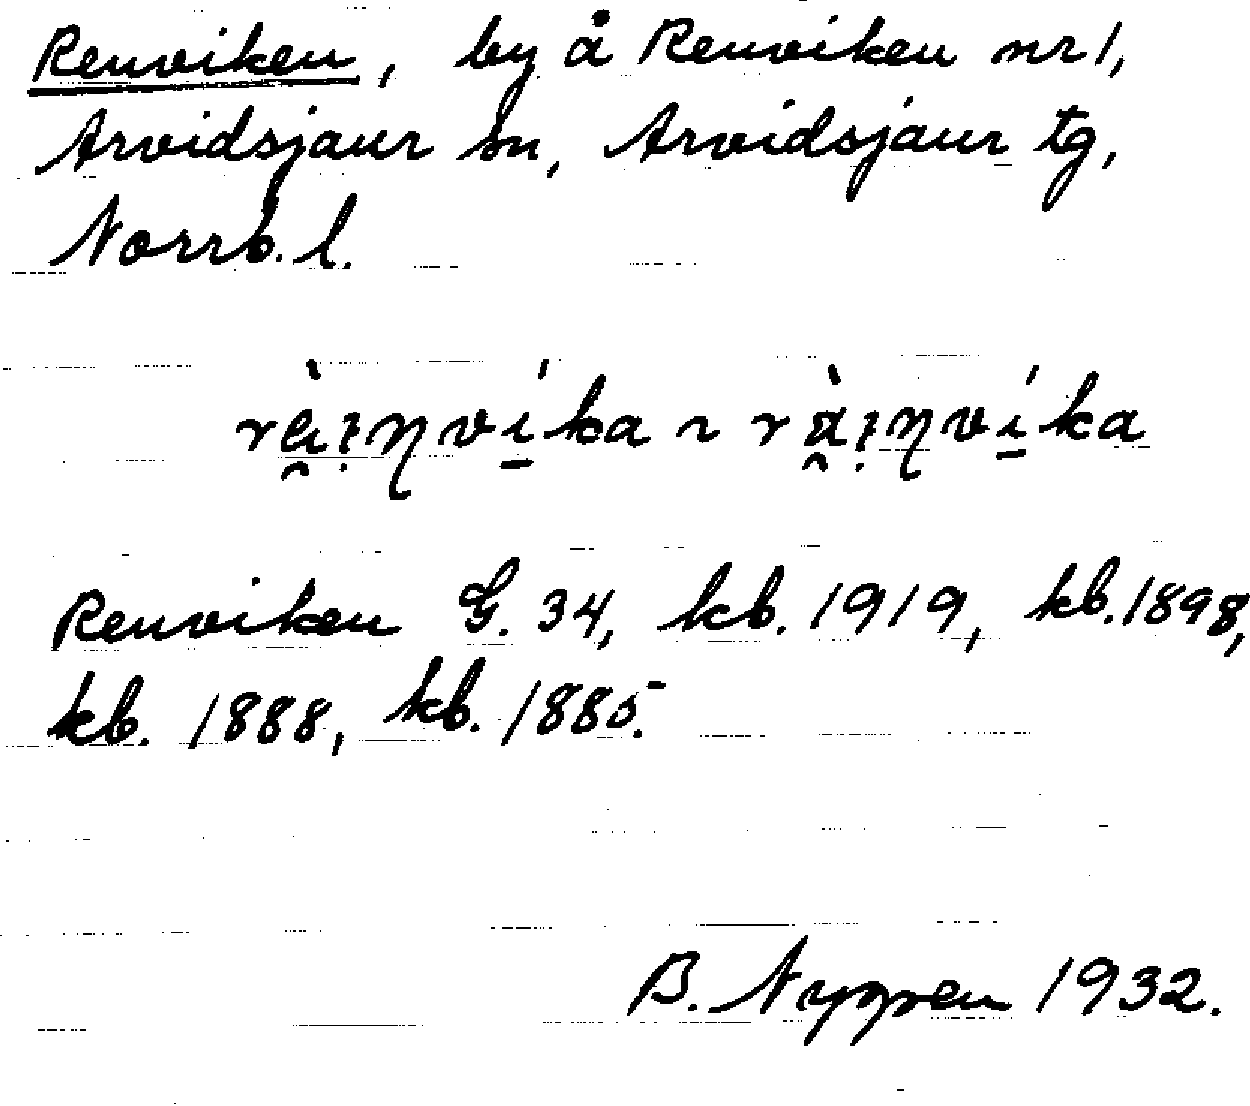 Renviken, by å Renviken nr 1,
Arvidsjaur sn, Arvidsjaur tg,
Norrb. l.
Renviken G. 34, kb. 1919, kb. 1898,
kb. 1888, kb. 1885.
B. Nygren 1932.